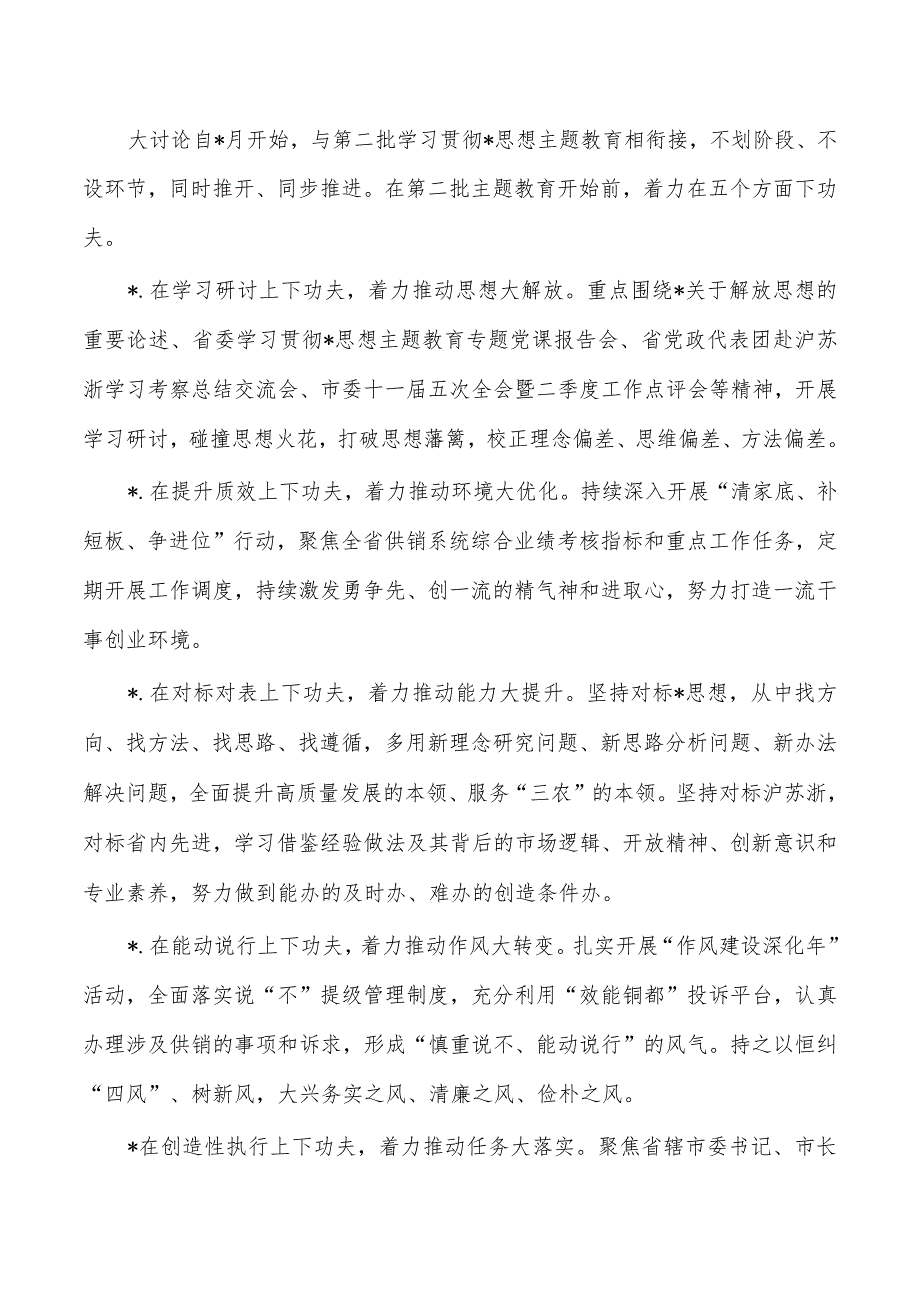 大讨论自*月开始，与第二批学习贯彻*思想主题教育相衔接，不划阶段、不
设环节，同时推开、同步推进。在第二批主题教育开始前，着力在五个方面下功
夫。
*. 在学习研讨上下功夫，着力推动思想大解放。重点围绕*关于解放思想的
重要论述、省委学习贯彻*思想主题教育专题党课报告会、省党政代表团赴沪苏
浙学习考察总结交流会、市委十一届五次全会暨二季度工作点评会等精神，开展
学习研讨，碰撞思想火花，打破思想藩篱，校正理念偏差、思维偏差、方法偏差。
*. 在提升质效上下功夫，着力推动环境大优化。持续深入开展“清家底、补
短板、争进位”行动，聚焦全省供销系统综合业绩考核指标和重点工作任务，定
期开展工作调度，持续激发勇争先、创一流的精气神和进取心，努力打造一流干
事创业环境。
*. 在对标对表上下功夫，着力推动能力大提升。坚持对标*思想，从中找方
向、找方法、找思路、找遵循，多用新理念研究问题、新思路分析问题、新办法
解决问题，全面提升高质量发展的本领、服务“三农”的本领。坚持对标沪苏浙，
对标省内先进，学习借鉴经验做法及其背后的市场逻辑、开放精神、创新意识和
专业素养，努力做到能办的及时办、难办的创造条件办。
*. 在能动说行上下功夫，着力推动作风大转变。扎实开展“作风建设深化年”
活动，全面落实说“不”提级管理制度，充分利用“效能铜都”投诉平台，认真
办理涉及供销的事项和诉求，形成“慎重说不、能动说行”的风气。持之以恒纠
“四风”、树新风，大兴务实之风、清廉之风、俭朴之风。
*在创造性执行上下功夫，着力推动任务大落实。聚焦省辖市委书记、市长